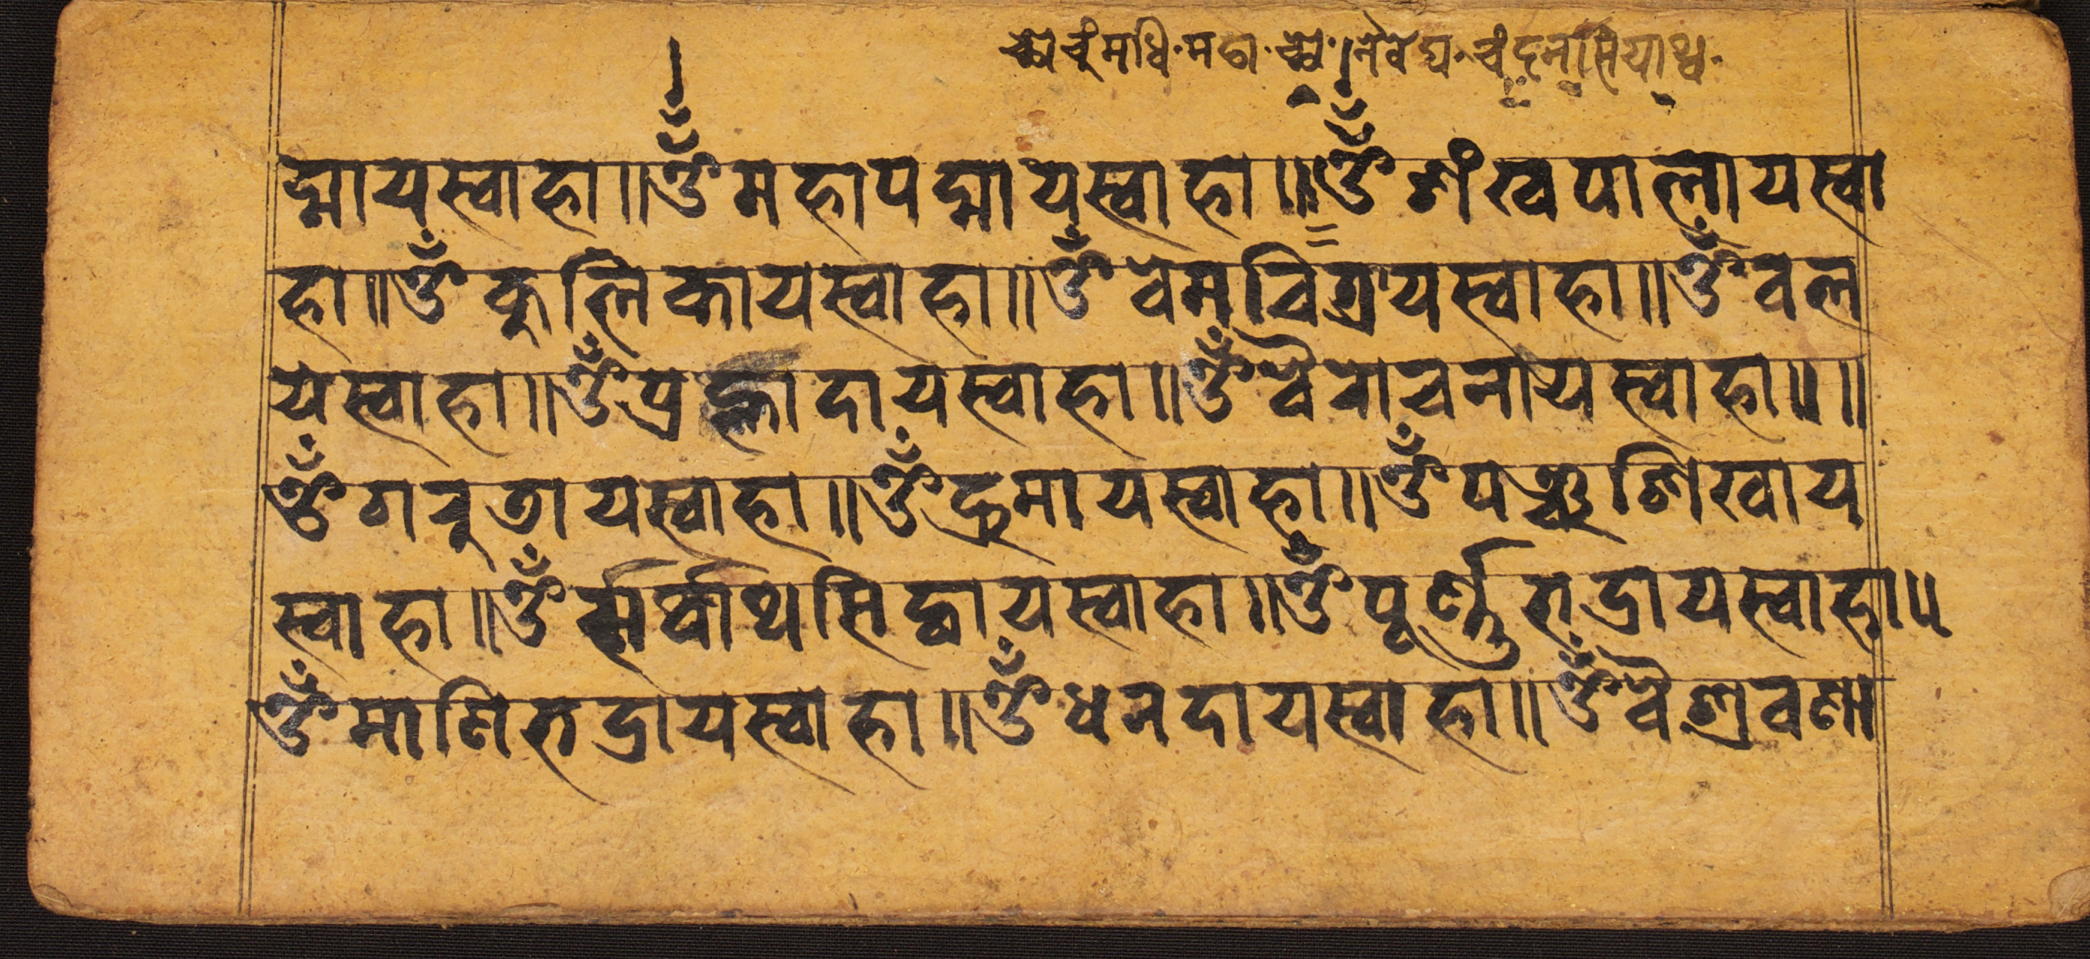 नैवेद्य चंदन
द्माय स्वाहा ॥ ॐ महापद्माय स्वाहा ॥ ॐ शंखपालाय स्वा
हा ॥ ॐ कुलिकाय स्वाहा ॥ ॐ वेमचित्रय स्वाहा ॥ ॐ वल
ये स्वाहा ॥ ॐ प्रह्लादाय स्वाहा ॥ ॐ वैरोचनाय स्वाहा ॥ ॥
ॐ गरुडाय स्वाहा ॥ ॐ द्रुमाय स्वाहा ॥ ॐ पञ्चशिखाय
स्वाहा ॥ ॐ र्सर्वाथसिद्धाय स्वाहा ॥ ॐ पूर्ण्णभद्राय स्वाहा ॥
ॐ माणिभद्राय स्वाहा ॥ ॐ धनदाय स्वाहा ॥ ॐ वैश्रवणा